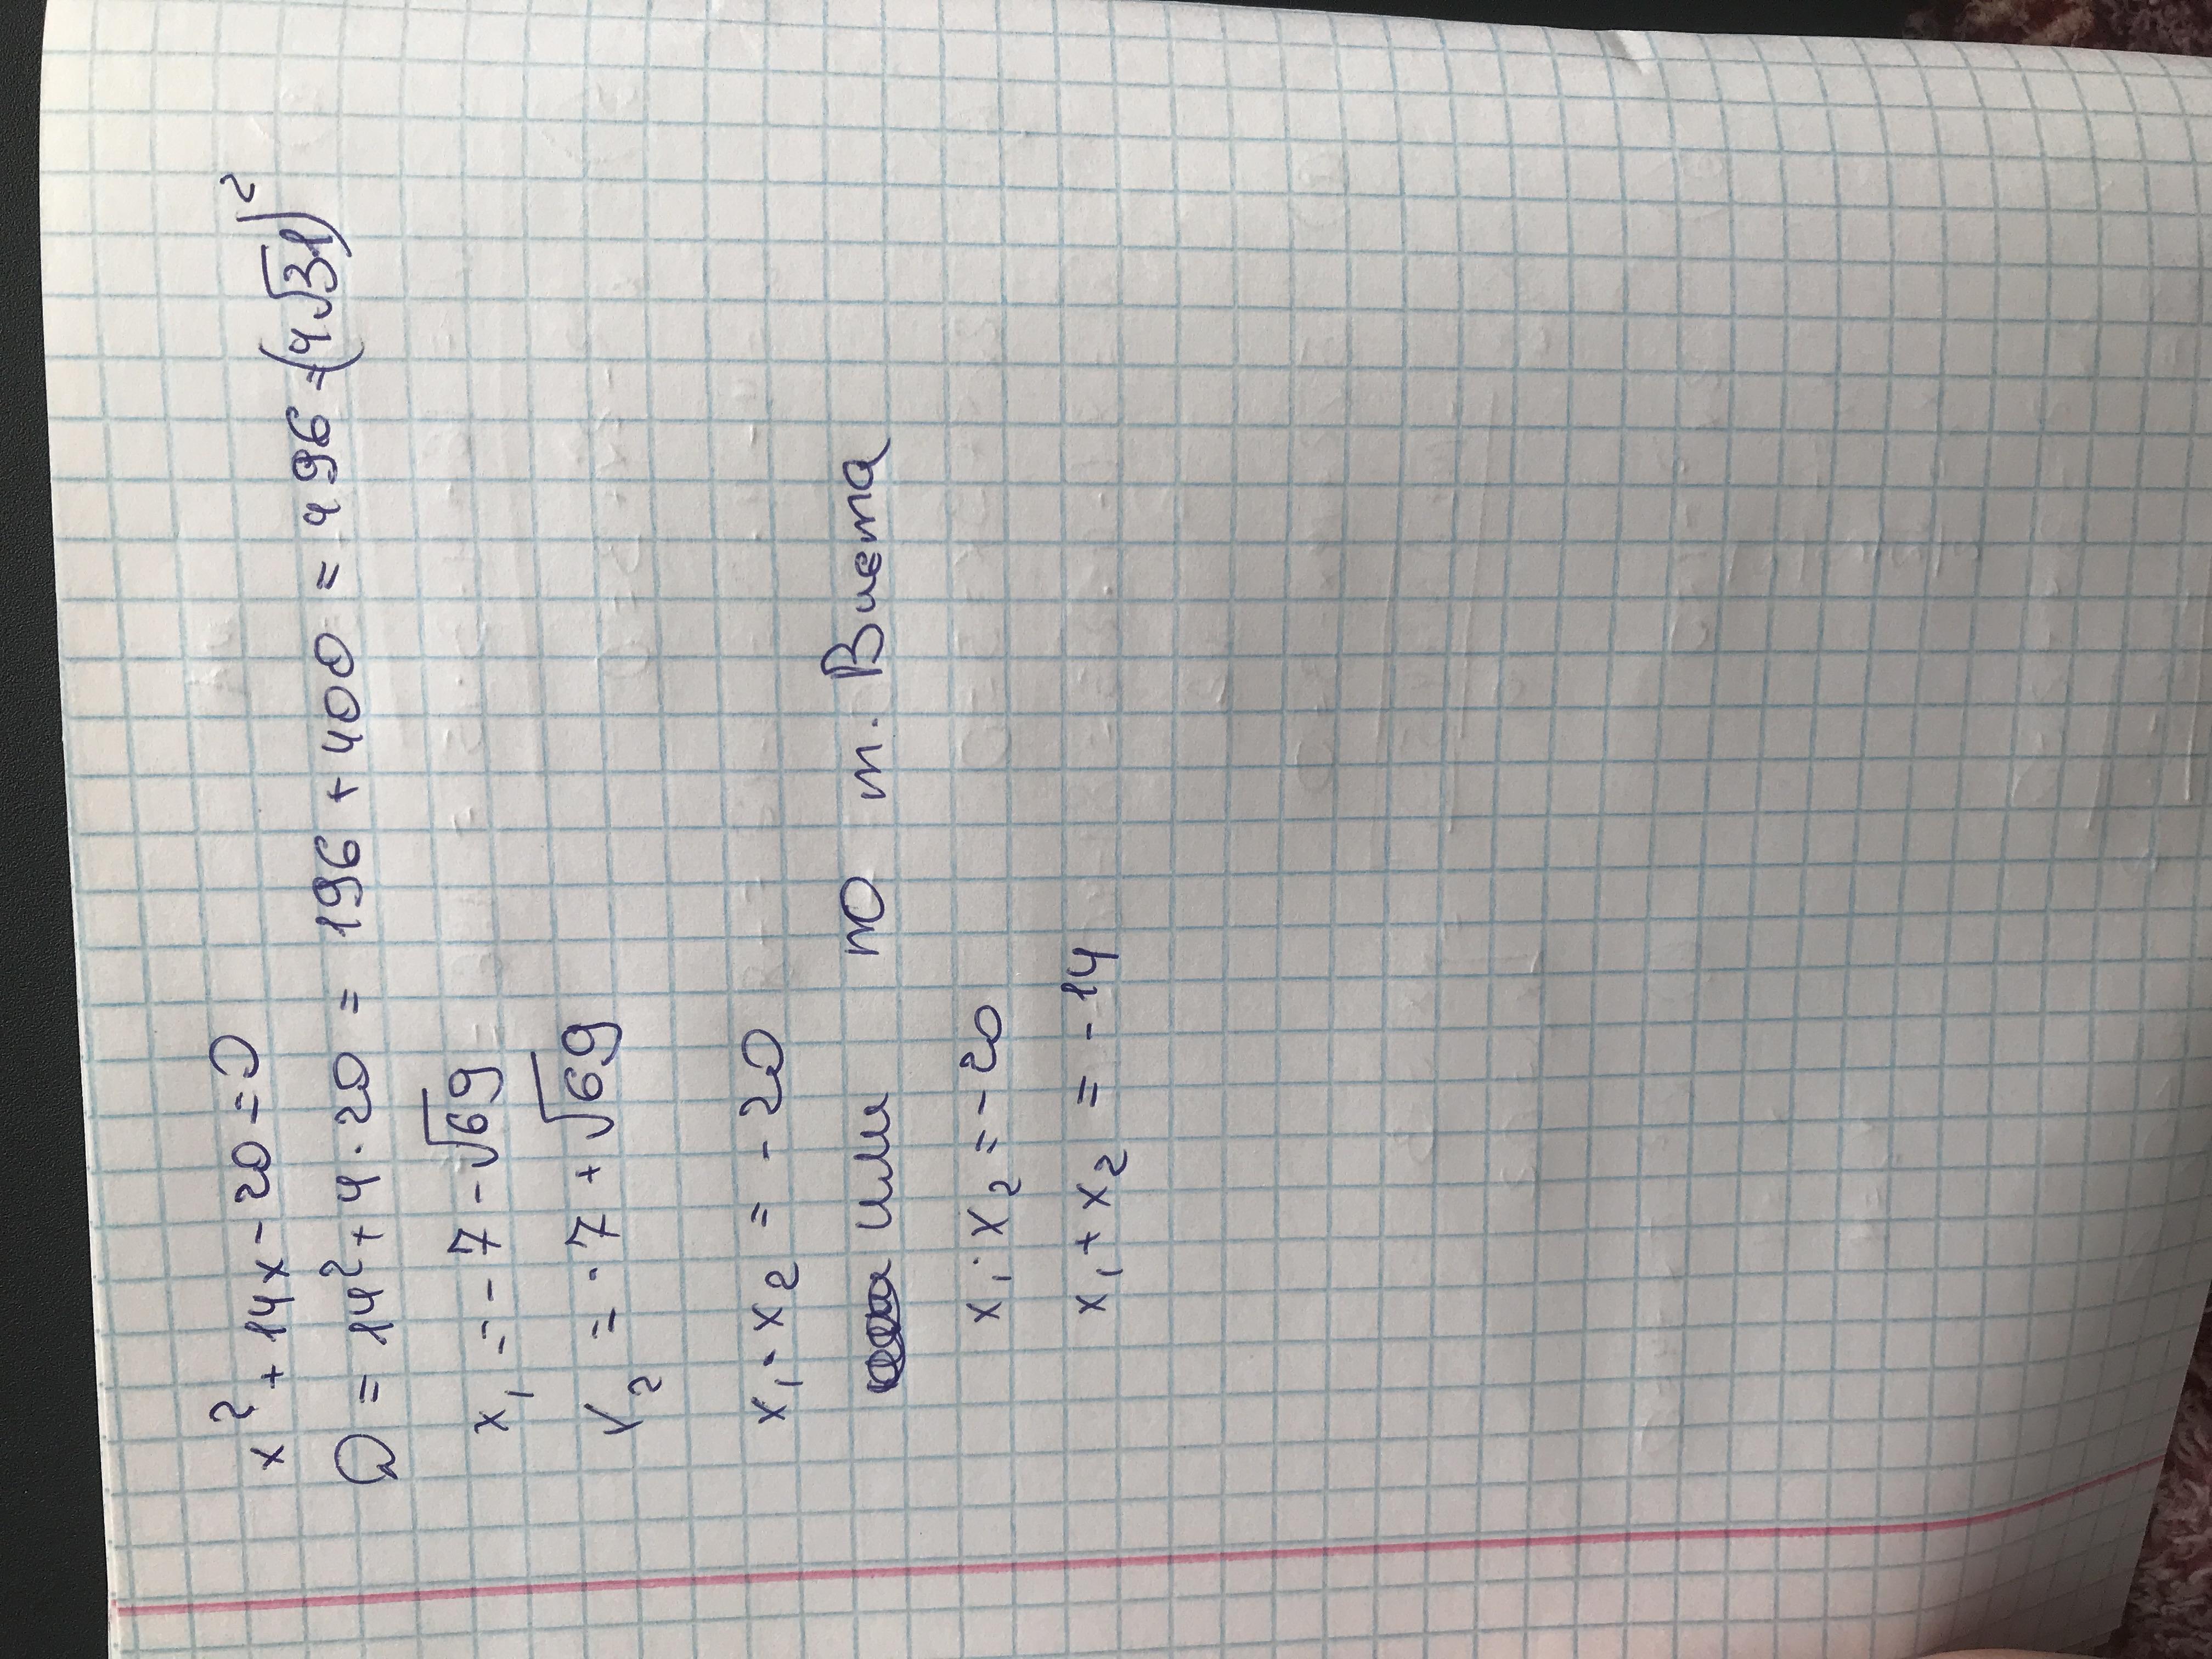 x² + 14x - 20 = 0
D = 14² + 4 · 20 = 196 + 400 = 496 = (4√31)²
x₁ = -7 - √69
x₂ = -7 + √69
x₁ · x₂ = -20
или по т. Виета
x₁ · x₂ = -20
x₁ + x₂ = -14